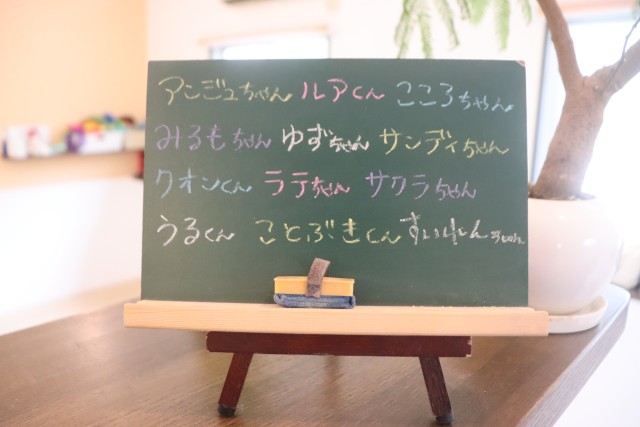 アンジュちゃん ルアくん こころちゃん
みるもちゃん ゆずちゃん サンディちゃん
クオンくん ララちゃん サクラちゃん
うるくん ことぶきくん すいれんちゃん